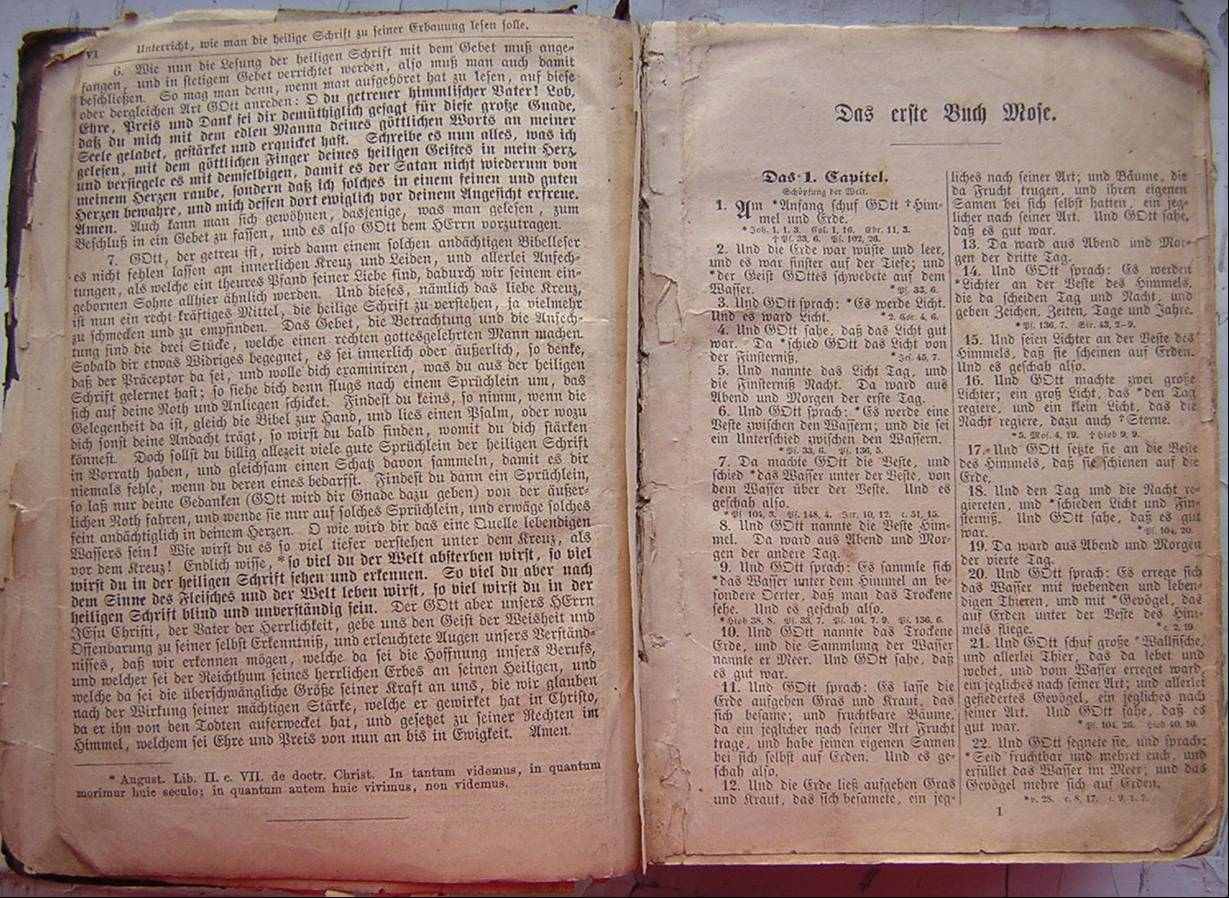 VI Unterricht, wie man die heilige Schrift zu seiner Erbauung lesen solle.
6. Wie nun die Lesung der heiligen Schrift mit dem Gebet muß ange-
fangen, und in stetigem Gebet verrichtet werden, also muß man auch damit
beschließen. So mag man denn, wenn man aufgehöret hat zu lesen, auf diese
oder dergleichen Art GOtt anreden: O du getreuer himmlischer Vater! Lob,
Ehre, Preis und Dank sei dir demüthiglich gesagt für diese große Gnade,
daß du mich mit dem edlen Manna deines göttlichen Worts an meiner
Seele gelabet, gestärket und erquicket hast. Schreibe es nun alles, was ich
gelesen, mit dem göttlichen Finger deines heiligen Geistes in mein Herz,
und versiegele es mit demselbigen, damit es der Satan nicht wiederum von
meinem Herzen raube, sondern daß ich solches in einem feinen und guten
Herzen bewahre, und mich dessen dort ewiglich vor deinem Angesicht erfreue.
Amen. Auch kann man sich gewöhnen, dasjenige, was man gelesen, zum
Beschluß in ein Gebet zu fassen, und es also GOtt dem HErrn vorzutragen.
7. GOtt, der getreu ist, wird dann einem solchen andächtigen Bibelleser
es nicht fehlen lassen am innerlichen Kreuz und Leiden, und allerlei Anfech-
tungen, als welche ein theures Pfand seiner Liebe sind, dadurch wir seinem ein-
gebornen Sohne allhier ähnlich werden. Und dieses, nämlich das liebe Kreuz,
ist nun ein recht kräftiges Mittel, die heilige Schrift zu verstehen, ja vielmehr
zu schmecken und zu empfinden. Das Gebet, die Betrachtung und die Anfech-
tung sind die drei Stücke, welche einen rechten gottesgelehrten Mann machen.
Sobald dir etwas Widriges begegnet, es sei innerlich oder äußerlich, so denke,
daß der Präceptor da sei, und wolle dich examiniren, was du aus der heiligen
Schrift gelernet hast; so siehe dich denn flugs nach einem Sprüchlein um, das
sich auf deine Noth und Anliegen schicket. Findest du keins, so nimm, wenn die
Gelegenheit da ist, gleich die Bibel zur Hand, und lies einen Psalm, oder wozu
dich sonst deine Andacht trägt, so wirst du bald finden, womit du dich stärken
könnest. Doch sollst du billig allezeit viele gute Sprüchlein der heiligen Schrift
in Vorrath haben, und gleichsam einen Schatz davon sammeln, damit es dir
niemals fehle, wenn du deren eines bedarfst. Findest du dann ein Sprüchlein,
so laß nur deine Gedanken (GOtt wird dir Gnade dazu geben) von der äußer-
lichen Noth fahren, und wende sie nur auf solches Sprüchlein, und erwäge solches
fein andächtiglich in deinem Herzen. O wie wird dir das eine Quelle lebendigen
Wassers sein! Wie wirst du es so viel tiefer verstehen unter dem Kreuz, als
vor dem Kreuz! Endlich wisse, *so viel du der Welt absterben wirst, so viel
wirst du in der heiligen Schrift sehen und erkennen. So viel du aber nach
dem Sinne des Fleisches und der Welt leben wirst, so viel wirst du in der
heiligen Schrift blind und unverständig sein. Der GOtt aber unsers HErrn
JEsu Christi, der Vater der Herrlichkeit, gebe uns den Geist der Weisheit und
Offenbarung zu seiner selbst Erkenntniß, und erleuchtete Augen unsers Verständ-
nisses, daß wir erkennen mögen, welche da sei die Hoffnung unsers Berufs,
und welcher sei der Reichthum seines herrlichen Erbes an seinen Heiligen, und
welche da sei die überschwängliche Größe seiner Kraft an uns, die wir glauben
nach der Wirkung seiner mächtigen Stärke, welche er gewirket hat in Christo,
da er ihn von den Todten auferwecket hat, und gesetzet zu seiner Rechten im
Himmel, welchem sei Ehre und Preis von nun an bis in Ewigkeit. Amen.
* August. Lib. II. c. VII. de doctr. Christ. In tantum videmus, in quantum
morimur huic seculo; in quantum autem huic vivimus, non videmus.
Das erste Buch Mose.
Das 1. Capitel.
Schöpfung der Welt.
1. Am *Anfang schuf GOtt †Him-
mel und Erde.
*Joh. 1, 1. 3. Col. 1, 16. Ebr. 11, 3.
† Pf. 33, 6. Pf. 102, 26.
2. Und die Erde war wüste und leer,
und es war finster auf der Tiefe; und
*der Geist GOttes schwebete auf dem
Wasser. *Pf. 33, 6.
3. Und GOtt sprach: *Es werde Licht.
Und es ward Licht. *2. Cor. 4, 6.
4. Und GOtt sahe, daß das Licht gut
war. Da *schied GOtt das Licht von
der Finsterniß. *Jes. 45, 7.
5. Und nannte das Licht Tag, und
die Finsterniß Nacht. Da ward aus
Abend und Morgen der erste Tag.
6. Und GOtt sprach: *Es werde eine
Veste zwischen den Wassern; und die sei
ein Unterschied zwischen den Wassern.
*Pf. 33, 6. Pf. 136, 5.
7. Da machte GOtt die Veste, und
schied *das Wasser unter der Veste, von
dem Wasser über der Veste. Und es
geschah also.
*Pf. 104, 3. Pf. 148, 4. Jer. 10, 12. c. 51, 15.
8. Und GOtt nannte die Veste Him-
mel. Da ward aus Abend und Mor-
gen der andere Tag.
9. Und GOtt sprach: Es sammle sich
*das Wasser unter dem Himmel an be-
sondere Oerter, daß man das Trockene
sehe. Und es geschah also.
*Hiob 38, 8. Pf. 33, 7. Pf. 104, 7. 9. Pf. 136, 6.
10. Und GOtt nannte das Trockene
Erde, und die Sammlung der Wasser
nannte er Meer. Und GOtt sahe, daß
es gut war.
11. Und GOtt sprach: Es lasse die
Erde aufgehen Gras und Kraut, das
sich besame; und fruchtbare Bäume,
da ein jeglicher nach seiner Art Frucht
trage, und habe seinen eigenen Samen
bei sich selbst auf Erden. Und es ge-
schah also.
12. Und die Erde ließ aufgehen Gras
und Kraut, das sich besamete, ein jeg-
liches nach seiner Art; und Bäume, die
da Frucht trugen, und ihren eigenen
Samen bei sich selbst hatten, ein jeg-
licher nach seiner Art. Und GOtt sahe,
daß es gut war.
13. Da ward aus Abend und Mor-
gen der dritte Tag.
14. Und GOtt sprach: Es werden
*Lichter an der Veste des Himmels,
die da scheiden Tag und Nacht, und
geben Zeichen, Zeiten, Tage und Jahre.
*Pf. 136, 7. Sir. 43, 2-9.
15. Und seien Lichter an der Veste des
Himmels, daß sie scheinen auf Erden.
Und es geschah also.
16. Und GOtt machte zwei große
Lichter; ein groß Licht, das *den Tag
regiere, und ein klein Licht, das die
Nacht regiere, dazu auch †Sterne.
*5. Mos. 4, 19. †Hiob 9, 9.
17. Und GOtt setzte sie an die Veste
des Himmels, daß sie schienen auf die
Erde,
18. Und den Tag und die Nacht re-
giereten, und *schieden Licht und Fin-
sterniß. Und GOtt sahe, daß es gut
war. *Pf. 104, 20.
19. Da ward aus Abend und Morgen
der vierte Tag.
20. Und GOtt sprach: Es errege sich
das Wasser mit webenden und leben-
digen Thieren, und mit *Gevögel, das
auf Erden unter der Veste des Him-
mels fliege. *c. 2, 19.
21. Und GOtt schuf große *Wallfische,
und allerlei Thier, das da lebet und
webet, und vom Wasser erreget ward,
ein jegliches nach seiner Art; und allerlei
gefiedertes Gevögel, ein jegliches nach
seiner Art. Und GOtt sahe, daß es
gut war. *Pf. 104, 26. Hiob 40, 10.
22. Und GOtt segnete sie, und sprach:
*Seid fruchtbar und mehret euch, und
erfüllet das Wasser im Meer; und das
Gevögel mehre sich auf Erden.
*v. 28. c. 8, 17. c. 9, 1. 7.
1